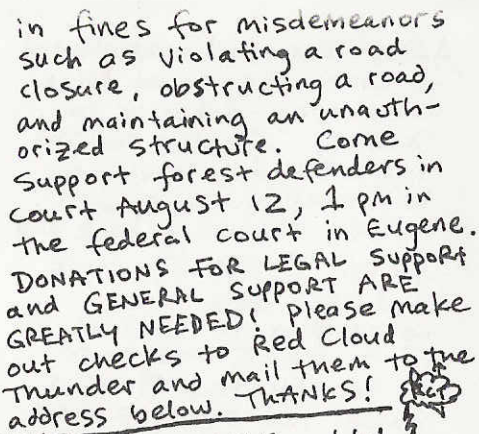 in fines for misdemeanors
such as violating a road
closure, obstructing a road,
and maintaining an unauth-
orized structure. Come
support forest defenders in
court August 12, 1 pm in
the federal court in Eugene.
DONATIONS FOR LEGAL Support
and GENERAL SUPPORT ARE
GREATLY NEEDED! Please make
out checks to Red Cloud
Thunder and mail them to the
address below. THANKS! RCT